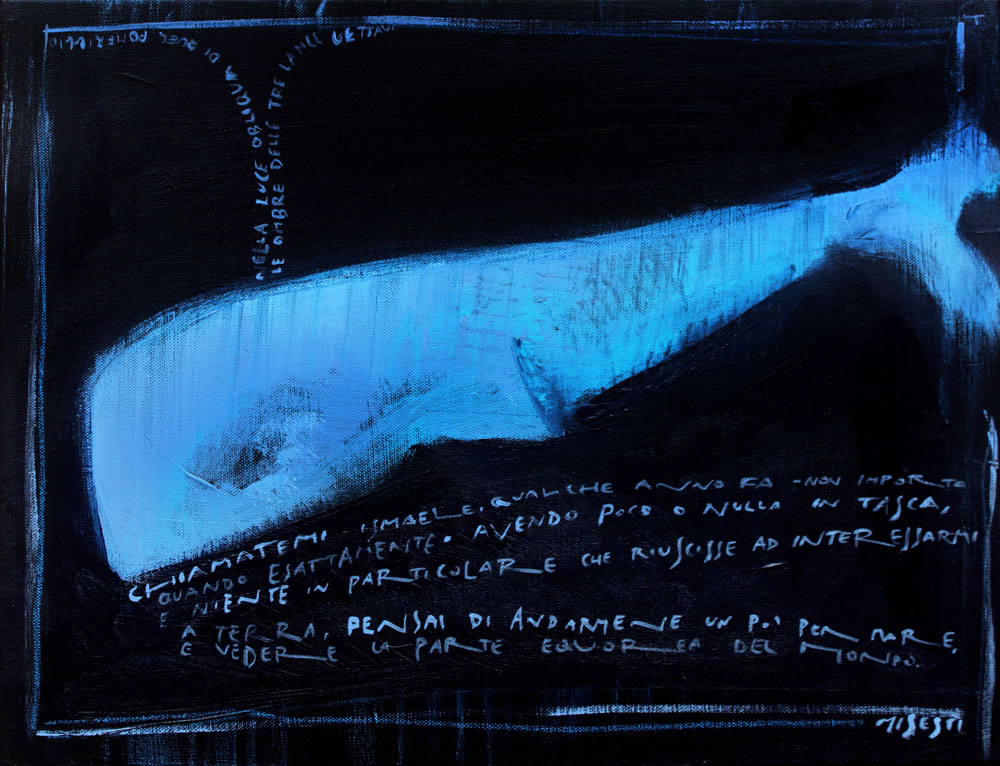 NELLA LUCE OBLIQUA DI QUEL POMERIGGIO
LE OMBRE DELLE TRE LANCE
CHIAMATEMI ISMAELE. QUALCHE ANNO FA - NON IMPORTA
QUANDO ESATTAMENTE. AVENDO POCO O NULLA IN TASCA,
E NIENTE IN PARTICOLARE CHE RIUSCISSE AD INTERESSARMI
A TERRA, PENSAI DI ANDARMENE UN PO' PER MARE,
E VEDERE LA PARTE EQUOREA DEL MONDO.
MISESTI